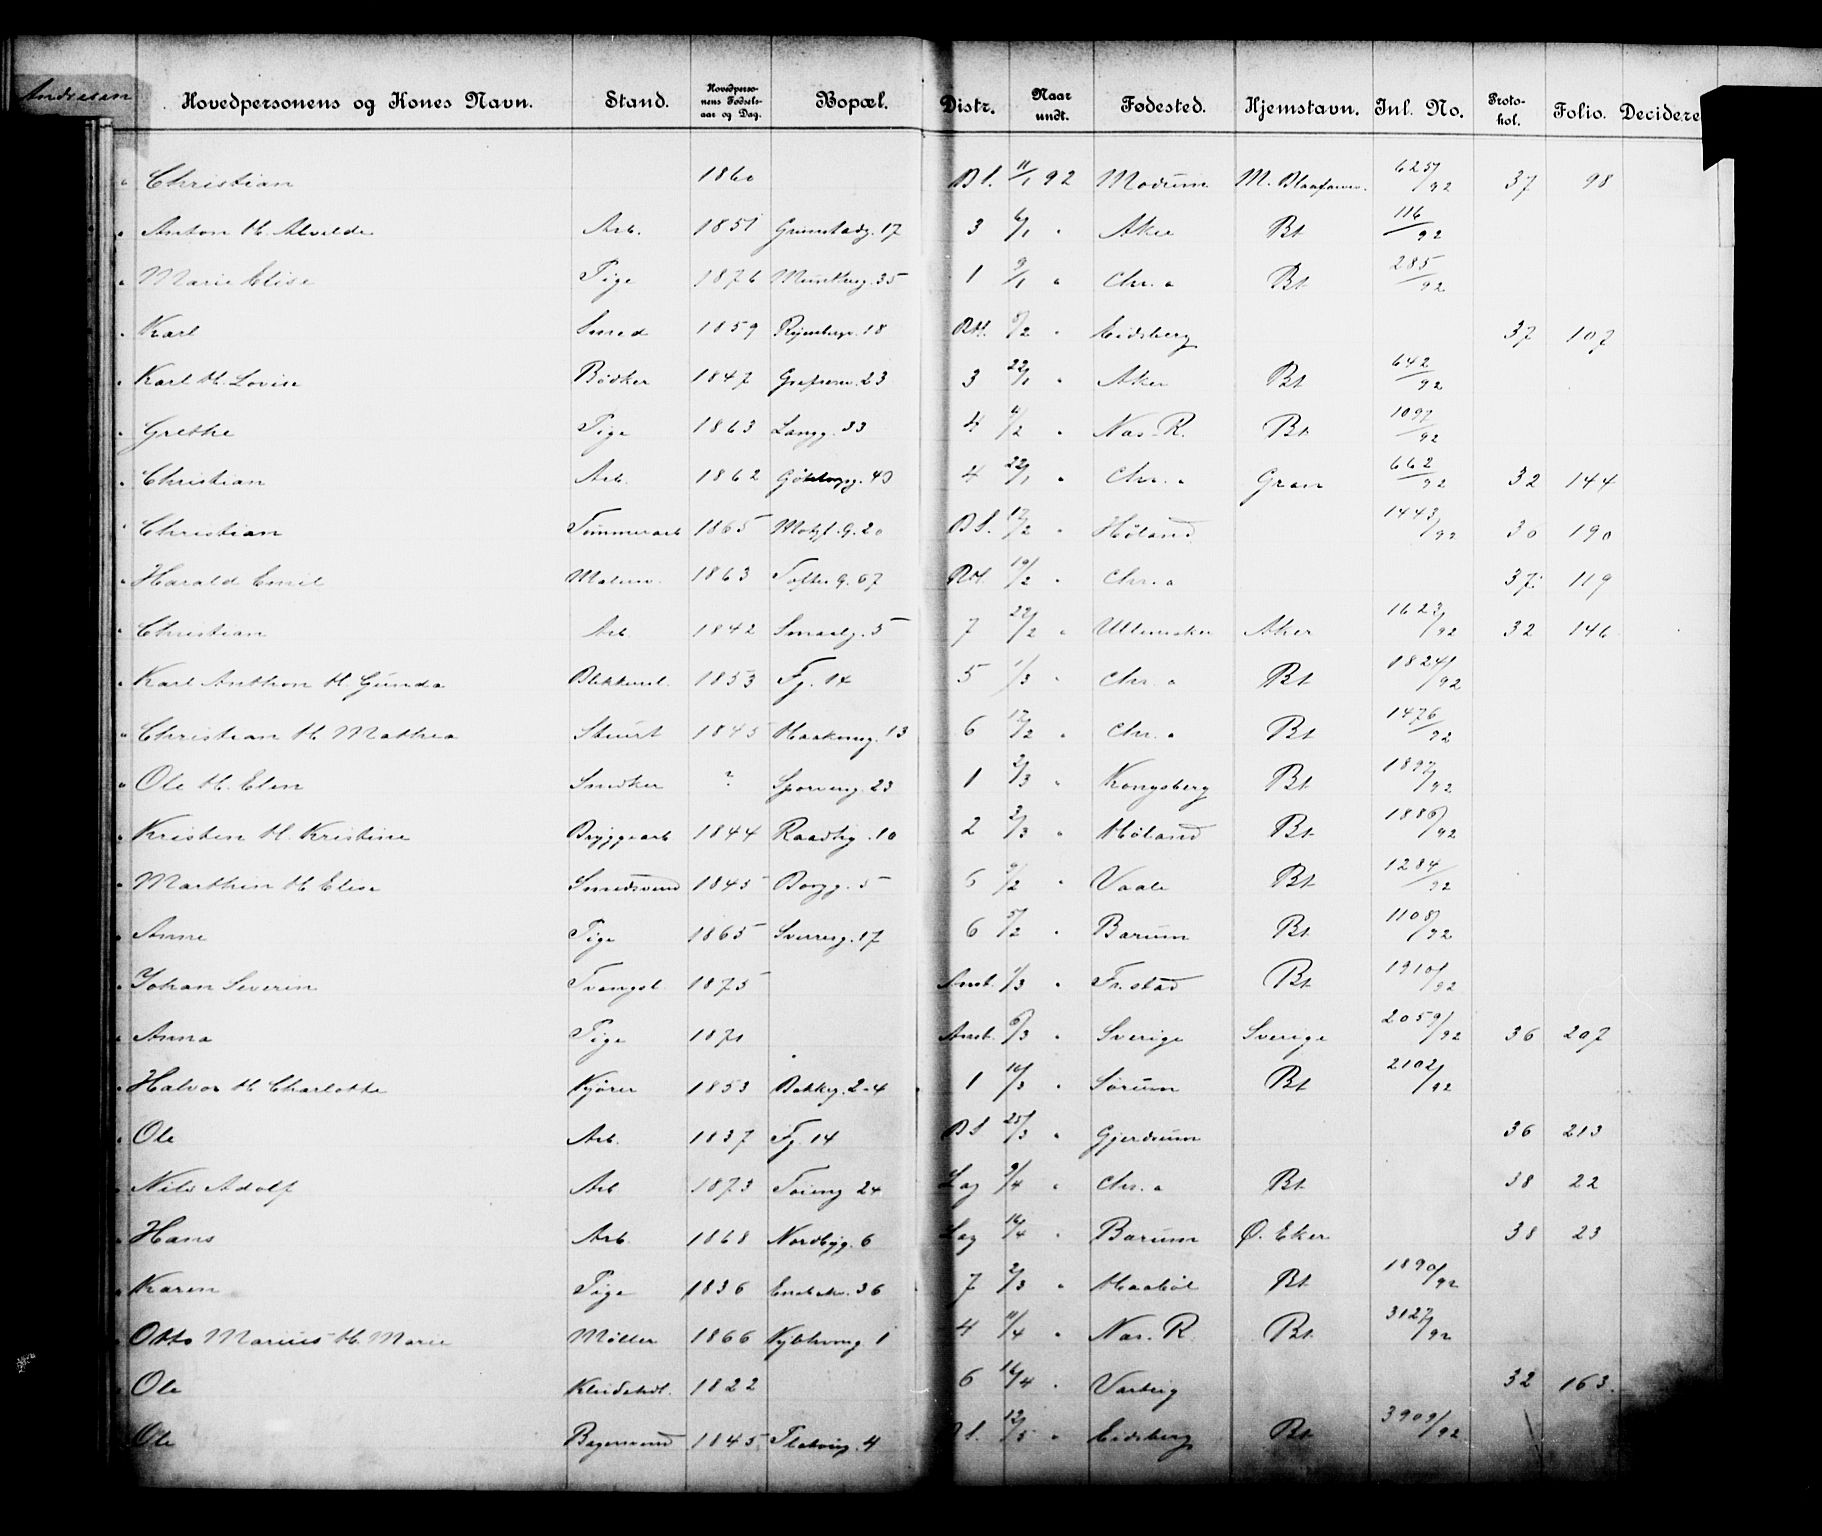 Andresen
Hovedpersonens og Kones Navn. Stand. Hovedperso-nens Fødsels-aar og Dag. Bopæl. Distr. Naar undt. Fødested. Hjemstavn. Inl. No. Proto-kol. Folio. Decidere
" Christian 1860 Bl. 11/1 92 Modum M. 625/92 37 98
" Anton H. Alvilde Arb. 1851 Grimstadg. 17 3 6/1 " Aker Bt 116/92
" Marie Elise Pige 1876 Munkeg. 35 1 9/1 " Chr. a Bt 285/92
" Karl Smed 1859 18 RH. /2 " Eidsberg 37 107
" Karl H. Lovise Bødker 1847 23 3 22/1 " Aker Bt 642/92
" Grethe Pige 1863 Langg. 33 4 /2 " Nas. R. Bt 1097/92
" Christian Arb. 1862 Gøteborgg. 40 4 22/1 " Chr. a Gran 662/92 32 144
" Christian Tømmerarb 1865 Motzf. G. 20 BS. 17/2 " Høland 1443/92 30 190
" Harald Emil Malersv. 1863 Tofteg. 67 RH. 10/2 " Chr. a 37. 119
" Christian Arb. 1842 Smaalg. 5 7 22/2 " Ullensaker Aker 1623/92 32 146
" Karl Anthon H. Gunda Blikkensl. 1853 Fj. 14 5 1/3 " Chr. a Bt 1824/92
" Christian H. Mathea Stuert 1845 13 6 17/2 " Chr. a Bt 1476/92
" Ole H. Elen Snedker ? Sporveisg. 23 1 2/3 " Kongsberg Bt 1897/92
" Kristen H. Kristine Bryggearb 1844 Raadhg. 10 2 2/3 " Høland Bt 1886/92
" Marthin H. Elise Smedsvend 1845 Borgg. 5 6 9/2 " Vaale Bt 1284/92
" Anne Pige 1865 Sverresg. 17 6 5/2 " Bærum Bt 1108/92
" Johan Severin Tvangsl. 1875 Anst. 1/3 " Fr. stad Bt 1910/92
" Anna Pige 1871 Anst. 6/3 " Sverige Sverige 2059/92 36 207
" Halvor H. Charlotte Kjører 1853 Bakkeg. 24 1 10/3 " Sørum Bt 2102/92
" Ole Arb. 1837 Fj. 14 BS 25/3 " Gjerdrum 36 213
" Nils Adolf Arb 1873 Tøieng 24 Lag 9/4 " Chr. a Bt 38 22
" Hans Arb. 1868 Nordbyg. 6 Lag 16/4 " Bærum Ø. Eker 38 23
" Karen Pige 1836 Enebakv. 36 7 2/3 " Haabøl Bt 1890/92
" Otto Marius H. Marie Møller 1866 1 4 11/4 " Nas. R. Bt 3127/92
" Ole Kludehdl. 1822 6 16/4 " Varteig 32 163.
" Ole Bagersvend 1845 4 12/5 " Eidsberg Bt 3909/92